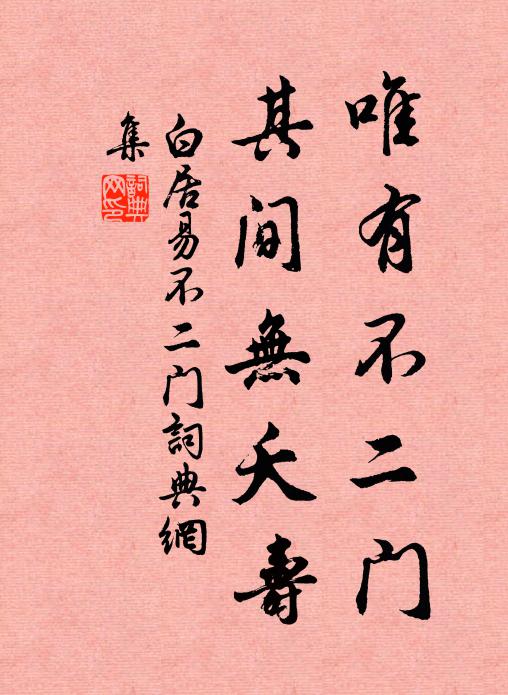 唯有不二门
其间無夭壽
白居易不二门詞典網
集
詞典
网印